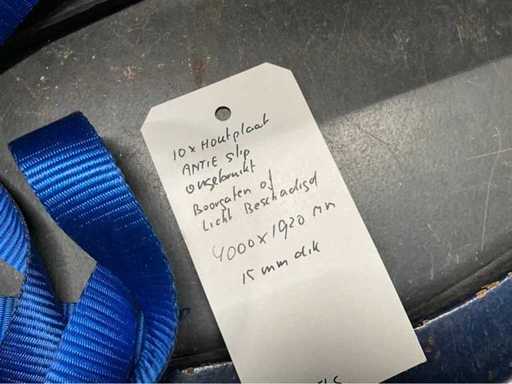 10 x Houtplaat
ANTIE Slip
ongebruikt
Boorgaten of
Licht Beschadigd
4000 x 1920 mm
15 mm dik